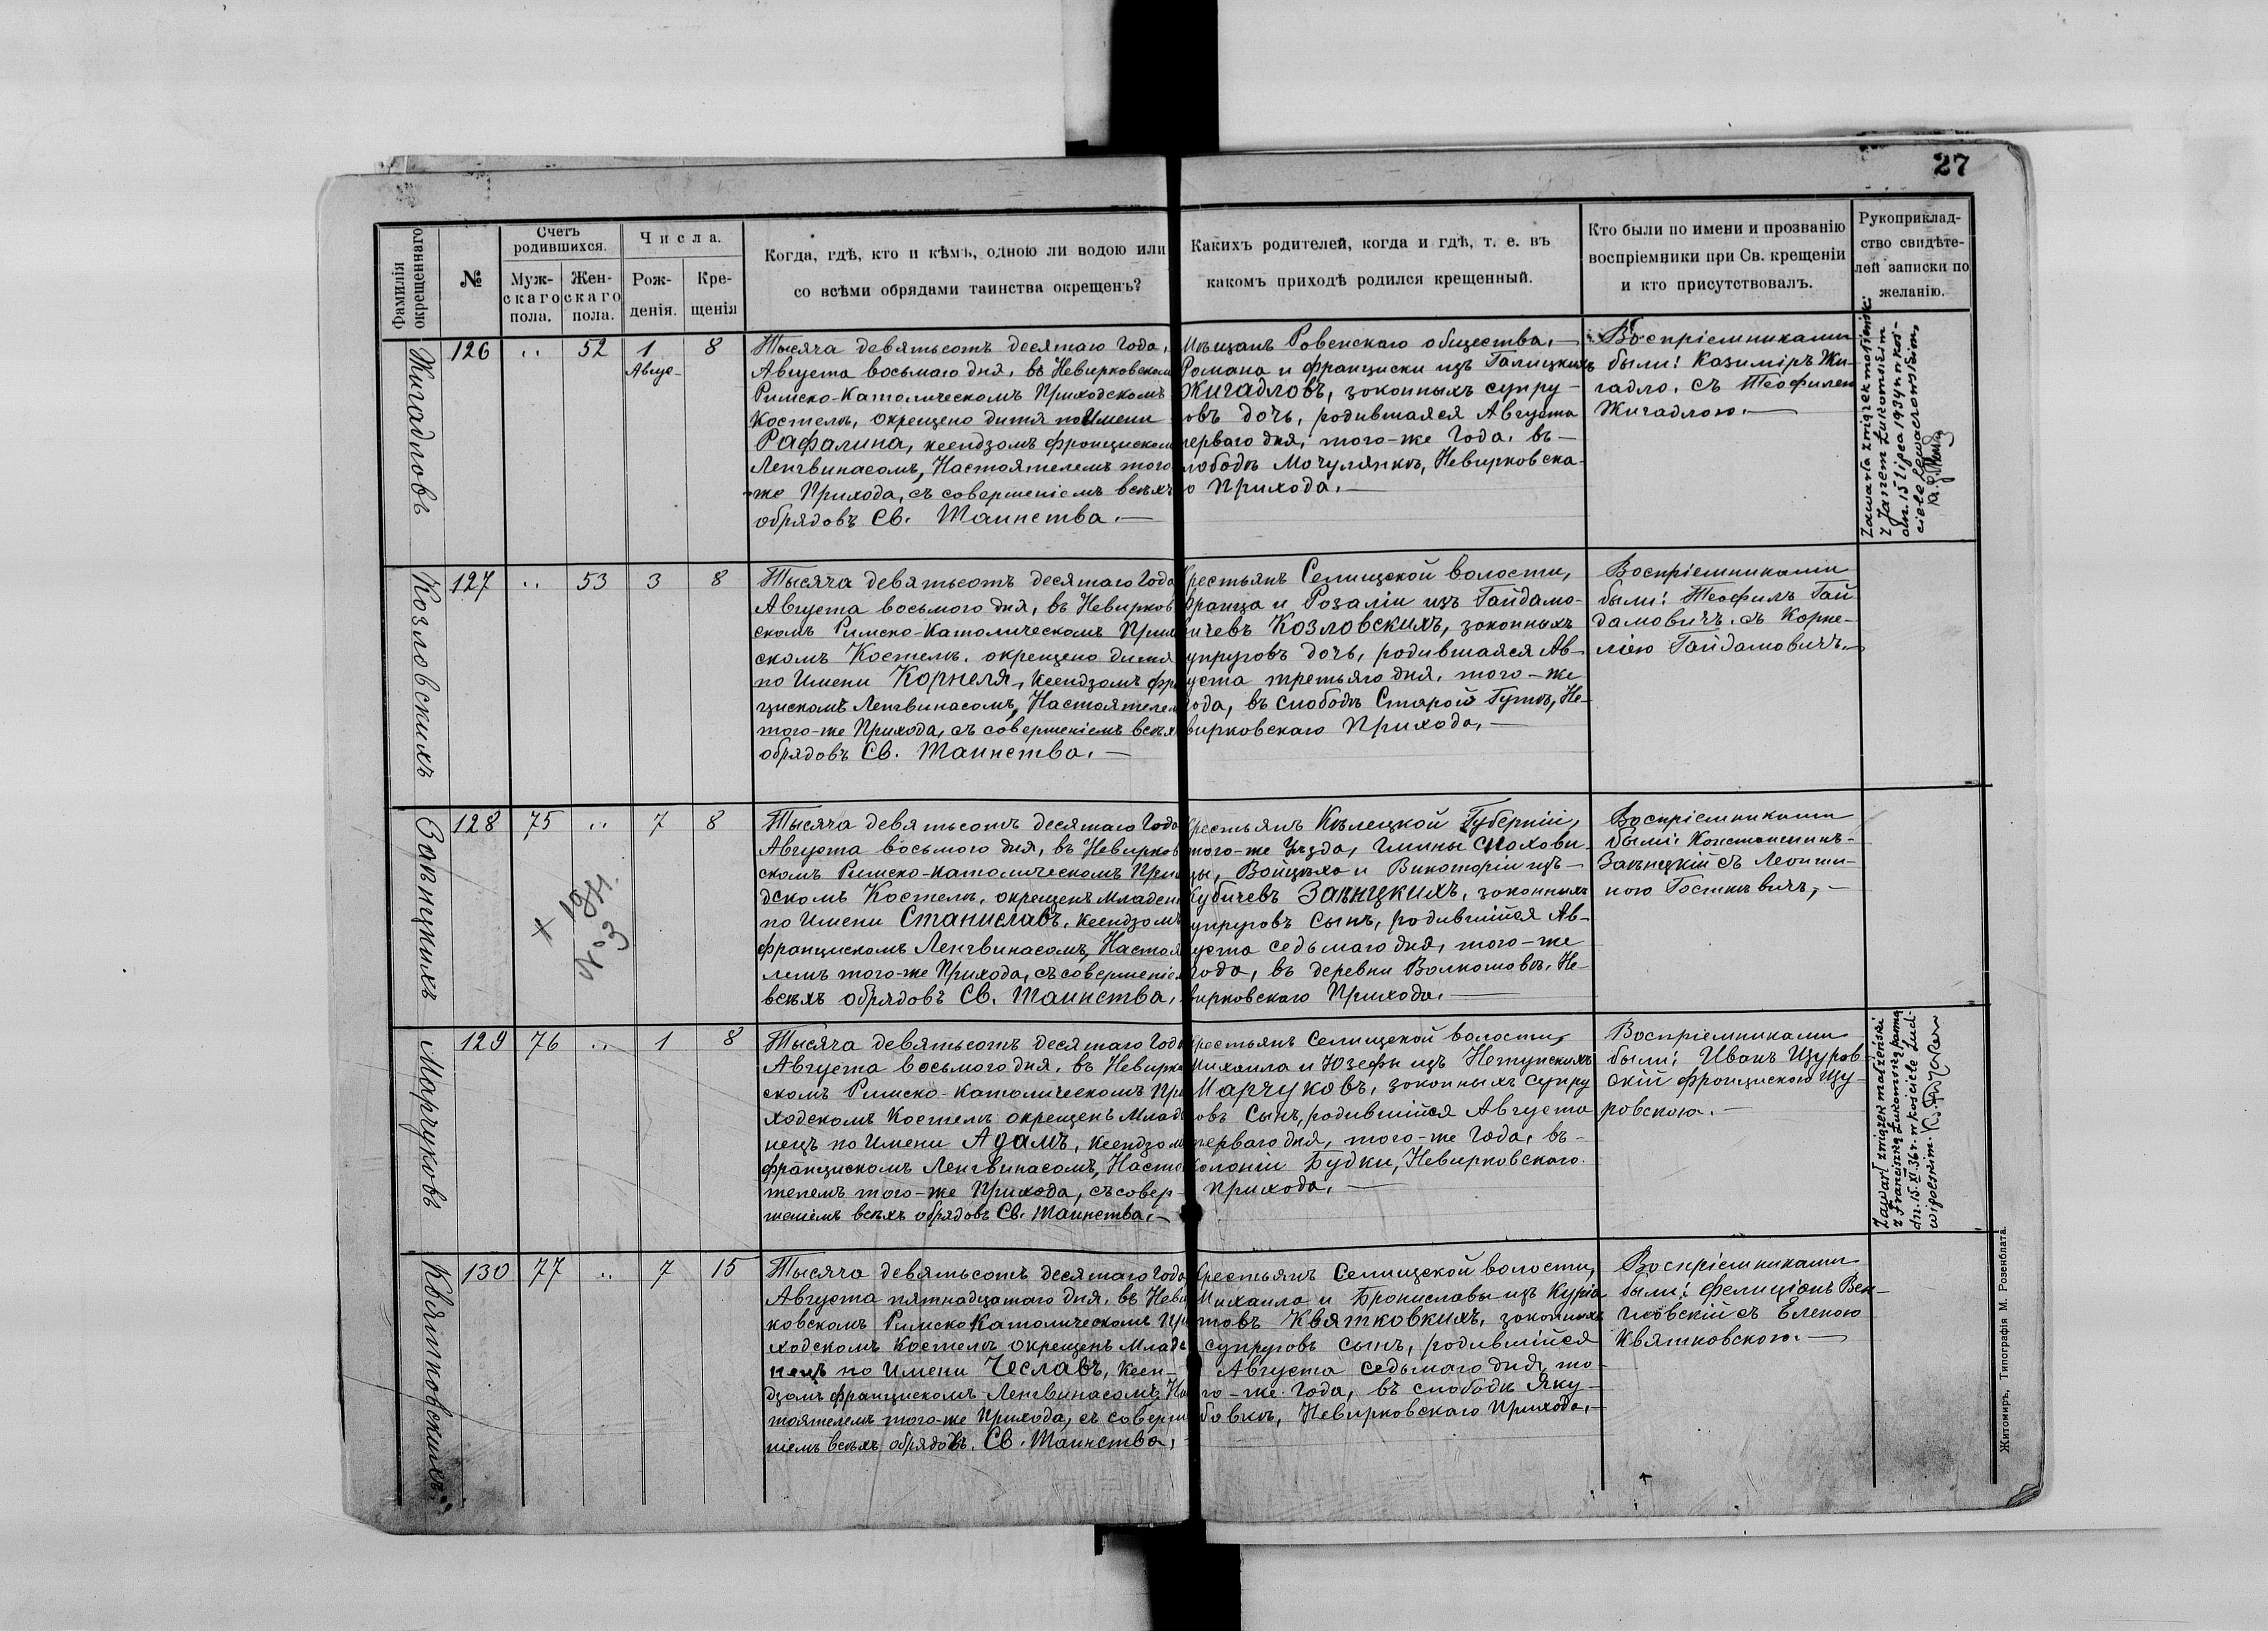 27
Фамилія окрещеннаго
№
Счетъ родившихся.
Муж-
скаго
пола.
Жен-
скаго
пола.
Числа.
Рож-
денія.
Кре-
щенія
Когда, гдѣ, кто и кѣмъ, одною ли водою или
со всѣми обрядами таинства окрещенъ?
Какихъ родителей, когда и гдѣ, т. е. въ
какомъ приходѣ родился крещенный.
Кто были по имени и прозванію
воспріемники при Св. крещеніи
и кто присутствовалъ.
Рукоприклад-
ство свидѣте-
лей записки по
желанію.
Жигадловъ
126 .. 52 1 8
Авгус-
Тысяча девятьсотъ десятаго Года,
Августа восьмаго дня, въ Невирковском
Римско-Католическомъ Приходскомъ
Костелѣ, окрещено дитя по Имени
Рафалина, ксендзомъ Францискомъ
Ленгвинасомъ, Настоятелемъ того
же Прихода, съ совершеніемъ всѣхъ
обрядовъ Св. Таинства. —
Мѣщанъ Ровенскаго общества, —
Романа и Франциски изъ Галицкихъ
Жигадловъ, законныхъ супру-
овъ дочь, родившаяся Августа
перваго дня, того-же Года, въ —
лободѣ Мочулянкѣ, Невирковска-
о Прихода. —
Воспріемниками
были: Казиміръ Жи-
гадло, съ Теофилею
Жигадлою. —
Zawarła związek małżeński:
z Janem Łukomskim
dn. 15 lipca 1934 r. w koś-
ciele
Козловскихъ
127 .. 53 3 8
Тысяча девятьсотъ десятаго Года
Августа восьмого дня, въ Невирков
скомъ Римско-Католическомъ Прих
скомъ Костелѣ, окрещено дитя
по Имени Корнеля, Ксендзомъ Фра
цискомъ Ленгвинасомъ, Настоятелем
того-же Прихода, съ совершеніемъ всѣхъ
обрядовъ Св. Таинства. —
рестьянъ Селищской волости,
Франца и Розаліи изъ Гайдамо-
вичевъ Козловскихъ, законныхъ
упруговъ дочь, родившаяся Ав-
уста третьяго дня, того-же
ода, въ слободѣ Старой Гутѣ, Не-
вирковскаго Прихода, —
Воспріемниками
были: Теофилъ Гай
дамовичъ, съ Корне-
ліею Гайдамовичъ. —
Заѣнцкихъ
128 75 .. 7 8
+ 1911.
№ 3
Тысяча девятьсотъ десятаго Года
Августа восьмого дня, въ Невирков
скомъ Римско-Католическомъ При
дскомъ Костелѣ, окрещенъ Младен
по Имени Станиславъ, Ксендзомъ
Францискомъ Ленгвинасомъ, Настоя
лемъ того-же Прихода, съ совершеніем
всѣхъ обрядовъ Св. Таинства.
рестьянъ Кѣлецкой Губерніи,
того-же Уѣзда, Гмины Снохови
цы, Войцѣха и Викторіи изъ —
Кубичевъ Заѣнцкихъ, законныхъ
упруговъ Сынъ, родившійся Ав-
уста седьмаго дня, того-же
ода, въ деревни Волкошовѣ, Не-
вирковскаго Прихода. —
Воспріемниками
были: Константинъ-
Заѣнцкій съ Леонти-
ною Госткевичъ, —
Марчуковъ
129 76 .. 1 8
Тысяча девятьсотъ десятаго Года
Августа восьмого дня, въ Невирко
скомъ Римско-Католическомъ При
ходскомъ Костелѣ окрещенъ Млад
нецъ по Имени Адамъ, Ксендзом
Францискомъ Ленгвинасомъ, Насто
телемъ того-же Прихода, съ совер-
шеніемъ всѣхъ обрядовъ Св. Таинства. —
рестьянъ Селищской волости,
Михаила и Юзефы изъ
Марчуковъ, законныхъ супру
овъ Сынъ, родившійся Августа
перваго дня, того-же Года, въ -
Колоніи Будки, Невирковскаго
Прихода, —
Воспріемниками
были: Иванъ Щуров-
скій Францискою Щу-
ровскою. —
Zawarł związek małżeński
z Franciszką Łukomską panną
dn. 15.XI.36 r. w kościele Lud-
wipolskim.
Квятковскихъ
130 77 .. 7 15
Тысяча девятьсотъ десятаго Года
Августа пятнадцатаго дня, въ Неви
ковскомъ Римско Католическомъ При
ходскомъ Костелѣ окрещенъ Младе
нецъ по Имени Чеславъ, Ксен-
дзомъ Францискомъ Ленгвинасомъ, На
тоятелемъ того-же Прихода, съ соверш
ніемъ всѣхъ обрядовъ Св. Таинства,
рестьянъ Селищской волости,
Михаила и Брониславы изъ Куріа
товъ Квятковкихъ, законныхъ
супруговъ сынъ, родившійся
Августа седьмаго дня, то-
го-же Года, въ слободѣ Яку-
бовкѣ, Невирковскаго Прихода, —
Воспріемниками
были: Фелиціанъ Вен-
гловскій съ Еленою
Квятковскою. —
Житомиръ, Типографія М. Розенблата.